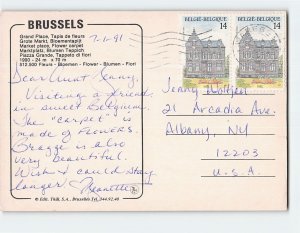 BRUSSELS
Grand Place, Tapis de fleurs
Grote Markt, Bloementapijt
Market place, Flower carpet
Marktplatz, Blumen Teppich
Piazza Grande, Tappeto di fiori
1990 - 24 m x 70 m
512.500 Fleurs - Bloemen - Flower - Blumen - Fiori
7-1-91
Dear Aunt Jenny,
Visiting a friend
in sweet Belgium.
The "carpet" is
made of FLOWERS.
Brugge is also
very beautiful.
Wish I could stay
longer Jeanette
© Edit. Thill, S.A., Brussels Tel.
BELGIE-BELGIQUE 14
BELGIE-BELGIQUE 14
Jenny
21 Arcadia Ave.
Albany, NY
12203
U.S.A.